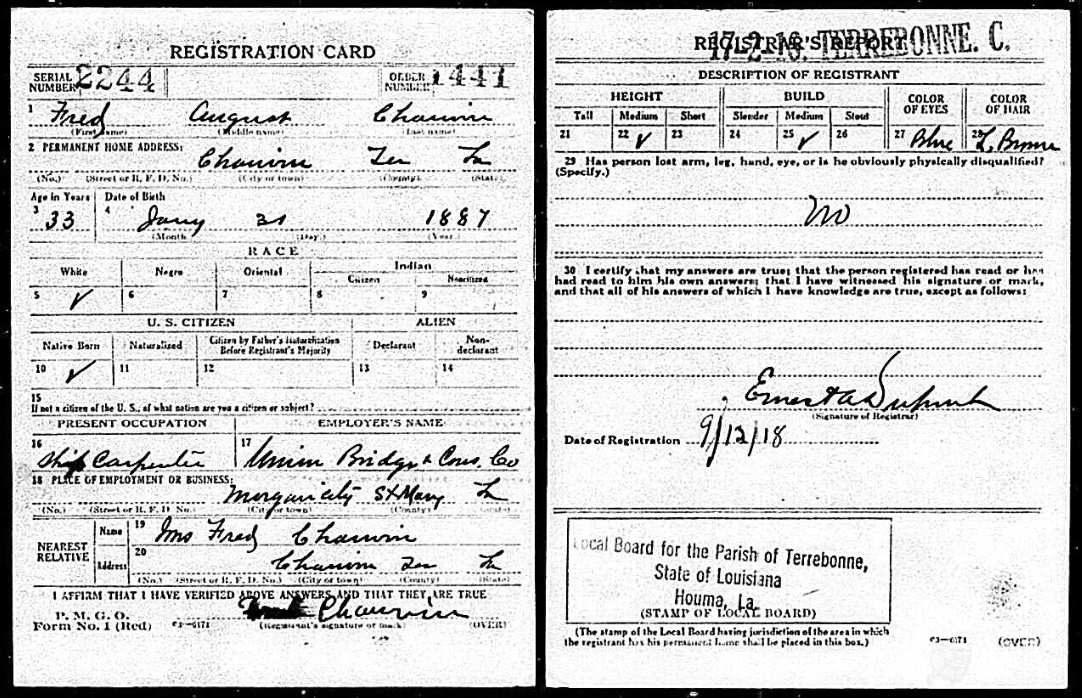 REGISTRATION CARD
SERIAL NUMBER 2244 ORDER NUMBER 1441
1 Fred August Chauvin
(First name) (Middle name) (Last name)
2 PERMANENT HOME ADDRESS:
Chauvin Ter La
(No.) (Street or R. F. D. No.) (City or town) (County) (State)
Age in Years Date of Birth
3 33 4 Jany 31 1887
(Month) (Day) (Year)
RACE
White Negro Oriental Indian
Citizen Noncitizen
5 ✓ 6 7 8 9
U. S. CITIZEN ALIEN
Native Born Naturalized Citizen by Father's Naturalization Before Registrant's Majority Declarant Non-declarant
10 ✓ 11 12 13 14
15
If not a citizen of the U. S., of what nation are you a citizen or subject?
PRESENT OCCUPATION EMPLOYER'S NAME
16 Ship Carpenter 17 Union Bridge & Cons. Co
18 PLACE OF EMPLOYMENT OR BUSINESS:
Morgan city St Mary La
(No.) (Street or R. F. D. No.) (City or town) (County) (State)
NEAREST RELATIVE Name 19 Mrs Fred Chauvin
Address 20 Chauvin Ter La
(No.) (Street or R. F. D. No.) (City or town) (County) (State)
I AFFIRM THAT I HAVE VERIFIED ABOVE ANSWERS AND THAT THEY ARE TRUE
P. M. G. O.
Form No. 1 (Red) 03—6171 Chauvin
(Registrant's signature or mark) (OVER)
REGISTRAR'S REPORT
17-2-16. TERREBONNE. C.
DESCRIPTION OF REGISTRANT
HEIGHT BUILD COLOR OF EYES COLOR OF HAIR
Tall Medium Short Slender Medium Stout
21 22 ✓ 23 24 25 ✓ 26 27 Blue 28 L. Brown
29 Has person lost arm, leg, hand, eye, or is he obviously physically disqualified?
(Specify.)
No
30 I certify that my answers are true; that the person registered has read or has
had read to him his own answers; that I have witnessed his signature or mark,
and that all of his answers of which I have knowledge are true, except as follows:
Ernest A Dupont
(Signature of Registrar)
Date of Registration 9/12/18
Local Board for the Parish of Terrebonne,
State of Louisiana
Houma, La.
(STAMP OF LOCAL BOARD)
(The stamp of the Local Board having jurisdiction of the area in which
the registrant has his permanent home shall be placed in this box.) 03—6171 (OVER)